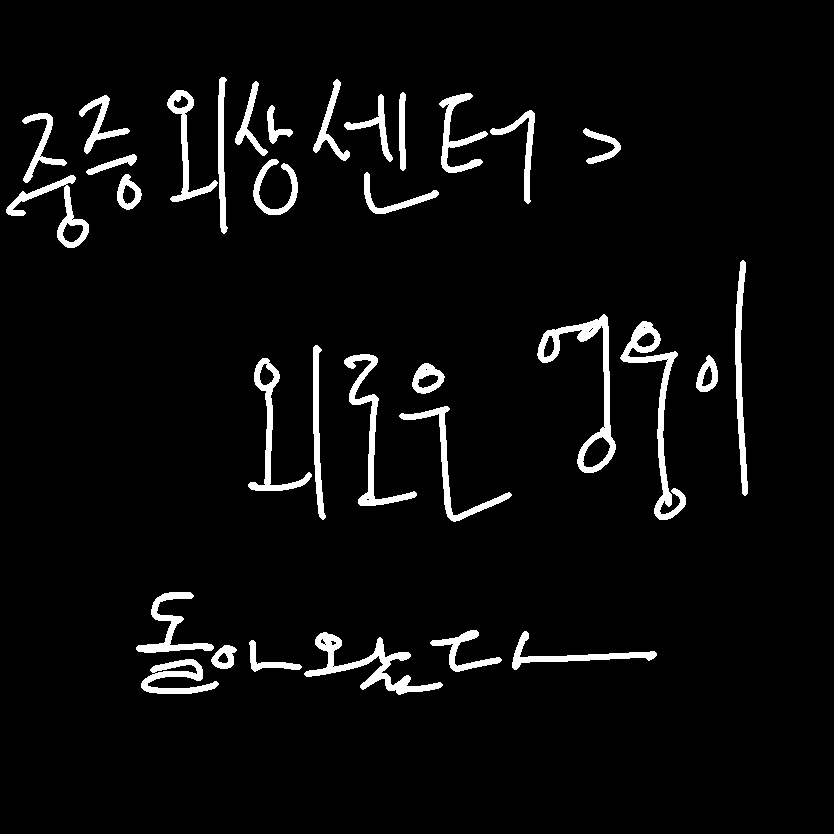 중증외상센터 >
외로운 영웅이
돌아왔다